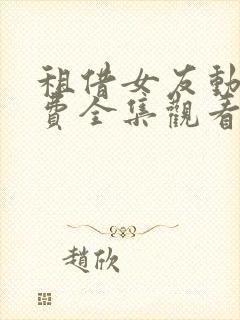 租借女友動
費全集觀看
趙欣